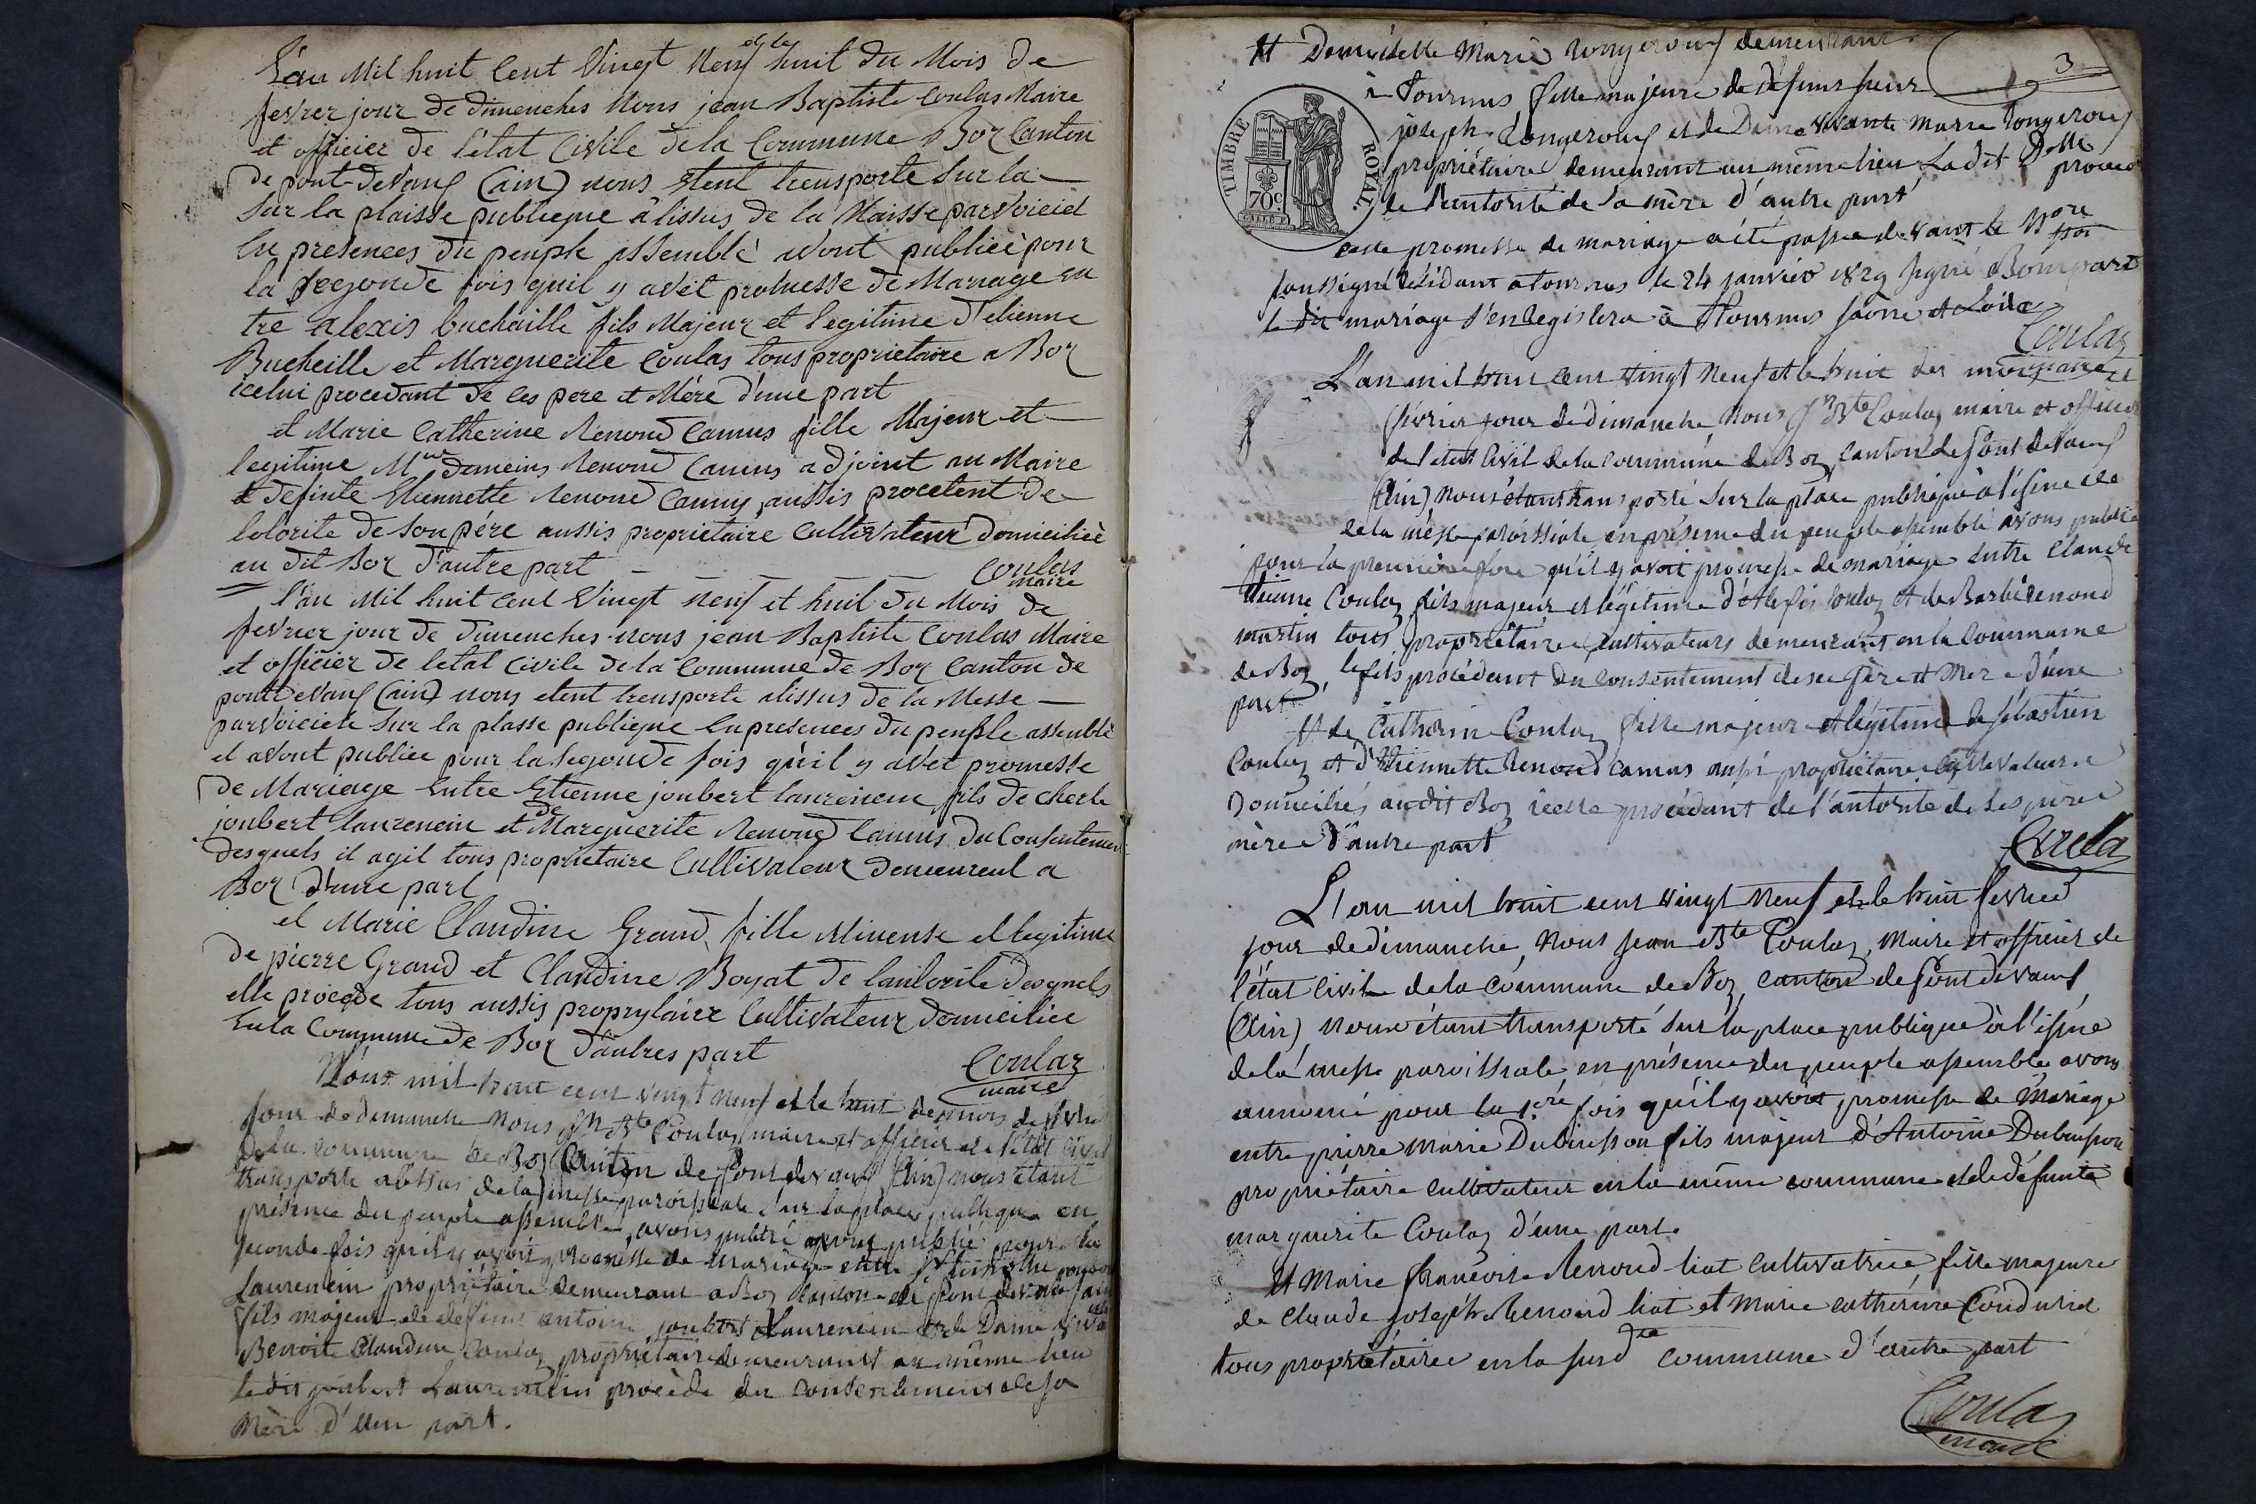 L'an Mil huit Cent Vingt Neuf et le huit du Mois de
fevrer jour de dimenches Nous jean Baptiste Coulas Maire
et officier de l'état Civile de la Commune Boz Canton
de pont-devaux (ain) nous étent trensporte Sur la
Sur la plaisse publieque à lissus de la Maisse parvoiciel
En presences du peuple assemblé avont publieé pour
la segonde fois quil y avét promesse de Mariage en
tre alexis buchaille fils Majeur et legitime d'etienne
Bucheille et Marguerite Coulas tous proprietaire a Boz
icelui procedant de ces pere et Mére d'une part
et Marie Catherine Renoud Camus fille Majeur et
legitime Demeins Renoud Camus adjoint au Maire
et definte Etiennette Renoud Camus, aussis procetent de
lotorite de son pére aussis proprietaire Cultivateur domiciliée
au dit Boz d'autre part
Coulas
maire
L'an Mil huit Cent Vingt neuf et huit du Mois de
fevrier jour de dimenches nous jean Baptiste Coulas Maire
et officier de letat Civile de la Commune de Boz Canton de
pontdevaux (ain) nous etent trensporte alissus de la Messe
parvoiciele Sur la plasse publieque En presences du peuple assemblé
et avont publiee pour la Segonde fois qu'il y avét promesse
de Mariage Entre Etienne joubert laurencin fils de cherle
joubert laurencin et de Marguerite Renoud Camus du Consentement
desquels il agit tous proprietaire Cultivateur demeurent a
Boz d'une part
et Marie Claudine Grand fille Mineuse et legitime
de pierre Grand et Claudine Boyat de lautorite desquels
elle procede tous aussis proprytaire Cultivateur domiciliee
En la Commune de Boz d'autres part
Coulaz
maire
L'an mil huit cent vingt neuf et le huit du mois de fevrier
jour de dimanche Nous Jn Bte Coulaz maire et officier de l'état Civil
de la commune de Boz Canton de pont de vaux (Ain) nous étant
transporté à l'issus de la messe paroissiale sur la place publique en
présence du peuple assemblé, avons publié avons publié pour la
seconde fois qu'il y avoit promesse de mariage entre
Laurencin propriétaire demeurant a Boz canton de pont de vaux (ain)
fils majeur de defunt antoine joubert Laurencin et de Dame
Benoite Claudine Coulaz propriétaire demeurant au même lieu
le dit joubert Laurencin procède du consentement de sa
Mère d'une part.
Et Demoiselle Marie Rongeroux demeurant
3
à Tournus fille majeure de defunt sieur
joseph Rongeroux et de Dame vivante Marie Rongeroux
propriétaire demeurant au même lieu La dit Delle procede
de l'autorité de sa mère d'autre part
TIMBRE ROYAL.
70c.
cette promesse de mariage a été passée devant le Nore
soussigné Résidant a Tournus le 24 janvier 1829 signé Bompart
le dit mariage s'enregistera à Tournus saône et Loire
Coulaz
maire
L'an mil huit cent vingt neuf et le huit du mois de
fevrier jour de dimanche Nous Jn Bte Coulaz maire et officier
de l'état Civil de la commune de Boz Canton de pont de vaux
(Ain) nous étant transporté sur la place publique à l'issue de
de la messe paroissiale en présence du peuple assemblé avons publié
pour la première fois qu'il y avoit promesse de mariage entre Claude
Etienne Coulaz fils majeur et légitime d'Alexis Coulaz et de Barbe Renoud
martin tous propriétaires cultivateurs demeurant en la commune
de Boz, le fils procédant du consentement de ses père et Mere d'une
part
Et de Catherine Coulaz fille majeure et légitime de sébastien
Coulaz et d'Etiennette Renoud Camus aussi propriétaires cultivateurs
Domiciliés audit Boz icelle procédant de l'autorité de ses père et
mère d'autre part
Coulaz
L'an mil huit cent vingt neuf et le huit fevrier
jour de dimanche, Nous Jean Bte Coulaz, Maire et officier de
l'état Civil de la commune de Boz, canton de pont de vaux
(Ain), Nous étant transporté sur la place publique à l'issue
de la messe paroissiale en présence du peuple assemblé avons
annoncé pour la 1ére fois qu'il y avoit promesse de Mariage
entre pierre marie Dubuisson fils majeur d'Antoine Dubuisson
propriétaire cultivateur en la même commune et de défunte
marguerite Coulaz d'une part.
Et Marie françoise Renoud-liat cultivatrice fille majeure
de claude joseph Renoud liat et Marie catherine Condurier
tous propriétaires en la susdte commune d'autre part
Coulaz
maire